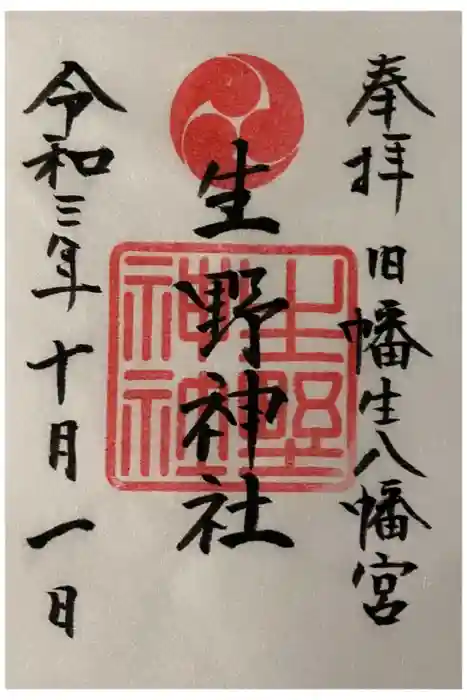 奉拝 旧幡生八幡宮
生野神社
令和三年十月一日